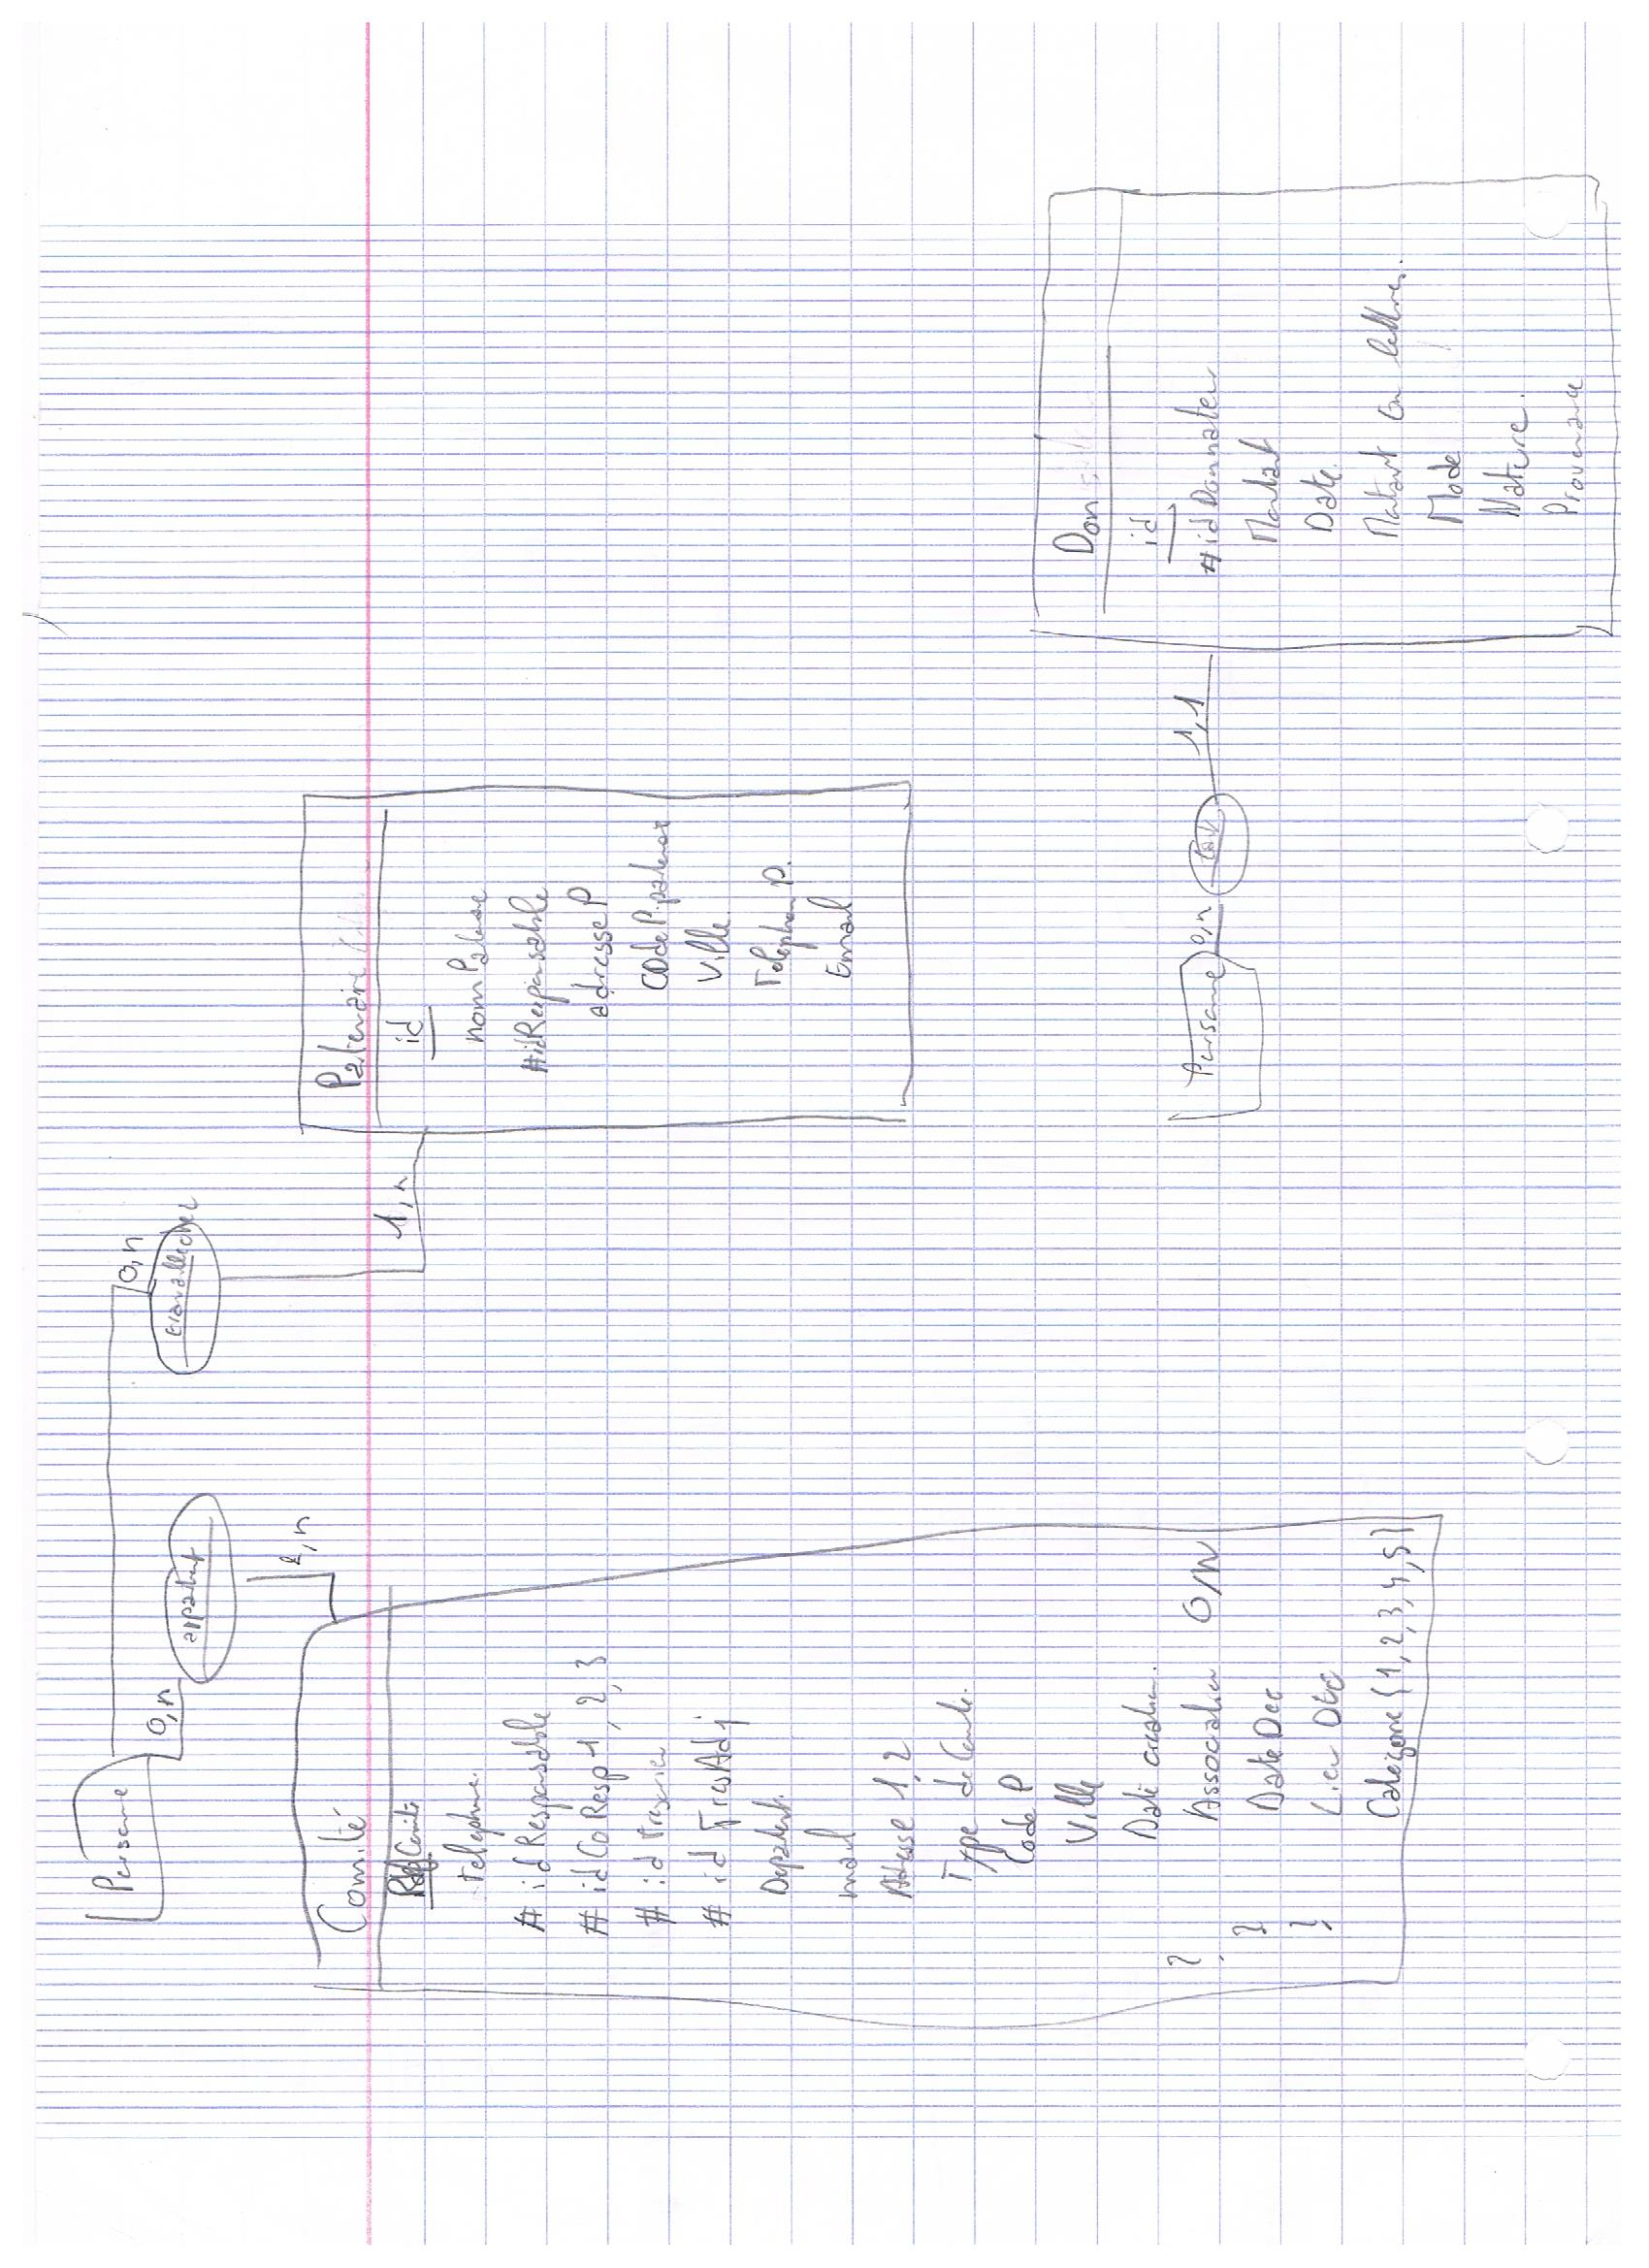 Personne
0,n
0,n
appartient
travaille chez
1,n
Comité
Ref Comité
telephone.
# idResponsable
# idCoResp 1, 2, 3
# id Tresorier
# id TresAdj
Depatent.
mail
Adresse 1, 2
Type de Comite.
Code P
Ville
Date creation.
? Association O/N
? Date Dec
? Lieu Dec
Categorie {1, 2, 3, 4, 5}
Patenaire
1,n
id
nomPatenaire
#idResponsable
adresse P
COde P. patenaire
Ville.
Telephon P.
Email
Personne
0,n
1,1
Don
id
#idDonnateur
Montant
Date.
Montant en lettres.
Mode
Nature.
Provenance